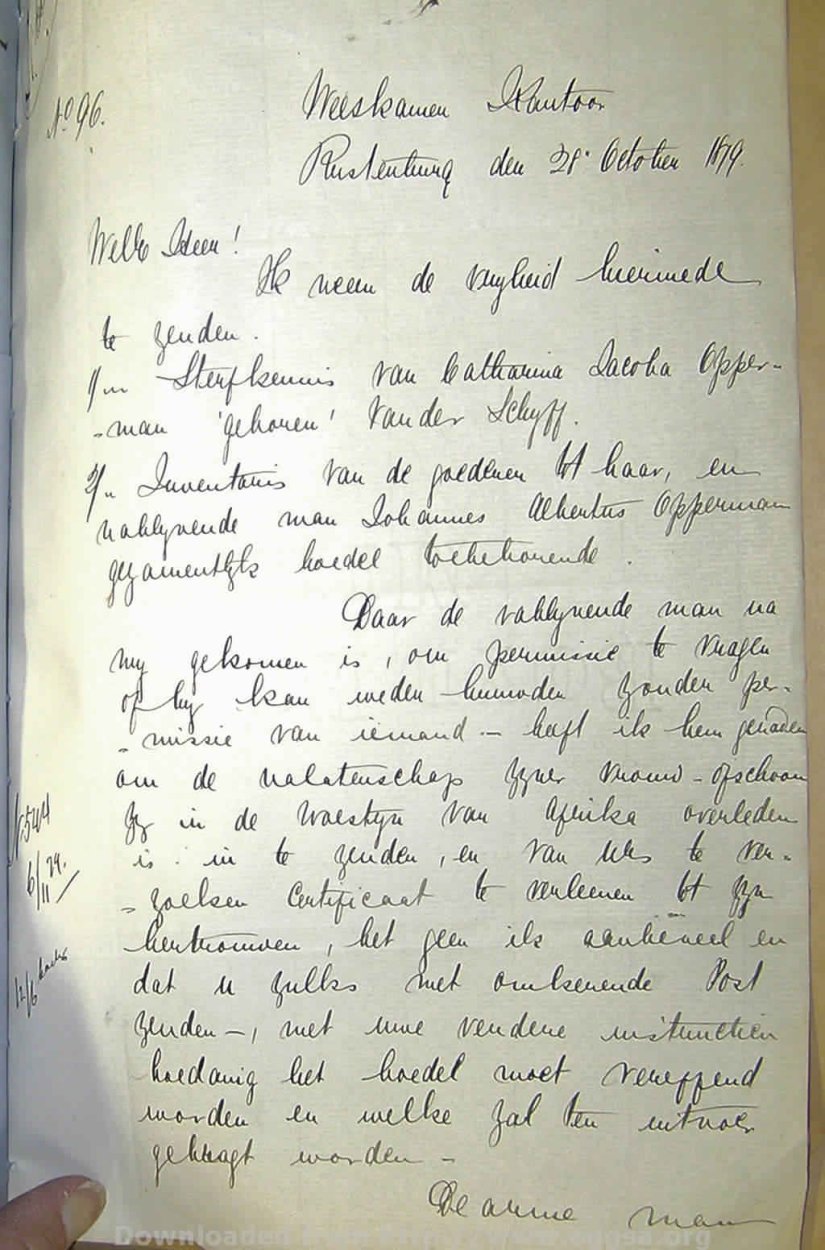 No 96.
Weeskamer Kantoor
Rustenburg den 28 October 1879.
WelEd Heer!
Ik neem de vryheid hiermede
te zenden.
1/n Sterfkennis van Catharina Jacoba Opper-
-man 'geboren' Van der Schyff.
2/n Inventaris van de goederen tot haar, en
nablyvende man Johannes Albertus Opperman
gezamentlyk boedel toebehorende.
Daar de nablyvende man na
my gekomen is, om permissie te vragen
of hy kan weder huwden zonder per-
-missie van iemand - heeft ik hem geraden
om de nalatenschap zyner vrouw - ofschoon
zy in de Woestyn van Afrika overleden
is in te zenden, en van UEs te ver-
-zoeken Certificaat te verleenen tot zyn
hertrouwen, het geen ik aanbeveel en
dat u zulks met omkeerende Post
zenden -, met uwe verdere instructien
hoedanig het boedel moet vereffend
worden en welke zal ten uitvoer
gebragt worden -
De arme man
N 544
6/11 79.
12/6
Downloaded from http://www.eggsa.org